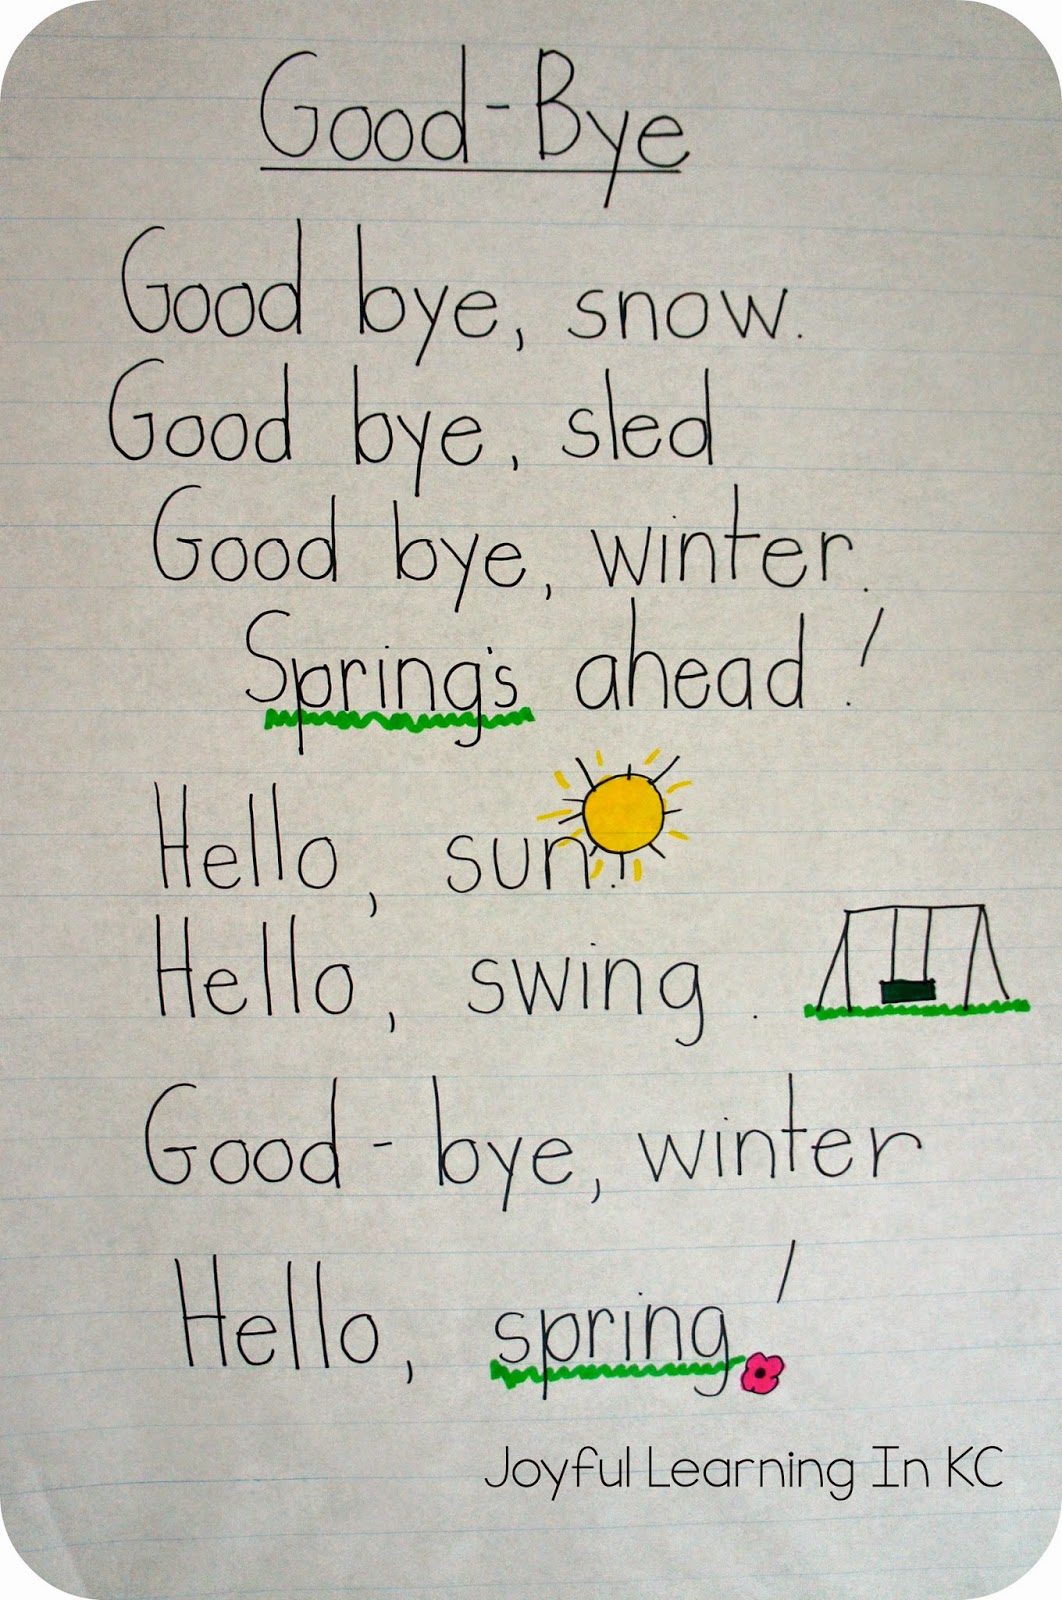 Good-Bye
Good bye, snow.
Good bye, sled
Good bye, winter.
Spring's ahead!
Hello, sun.
Hello, swing.
Good-bye, winter
Hello, spring!
Joyful Learning In KC